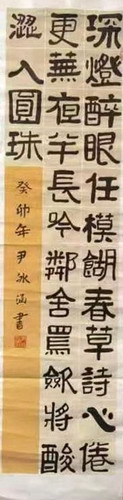 深燈醉眼任模餬春草詩心倦
更蕪夜半長吟鄰舍罵斂將酸
澀入圓珠
癸卯年尹冰涵書